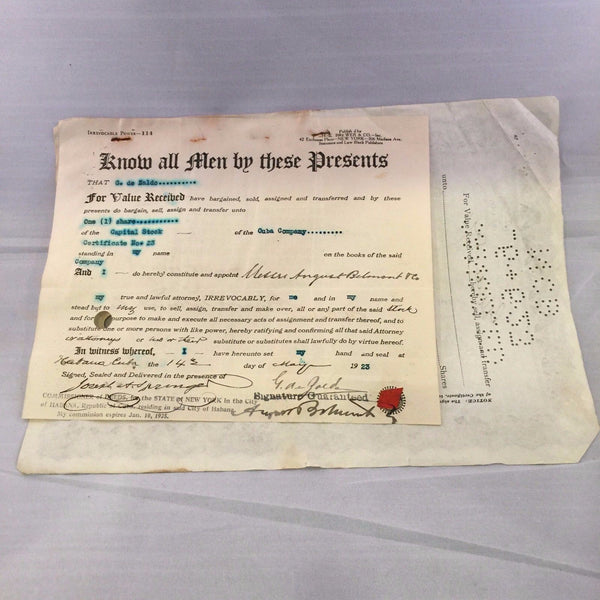 IRREVOCABLE POWER—114
WEIL & CO.—Inc.
42 Exchange Place—NEW YORK—
Insurance and Law Blank Publishers
Know all Men by these Presents
THAT G. de Zaldo..........
For Value Received have bargained, sold, assigned and transferred and by these
presents do bargain, sell, assign and transfer unto
One (1) share...........
of the Capital Stock of the Cuba Company.........
Certificate Nos 23
standing in my name on the books of the said
Company
And I do hereby constitute and appoint Messrs August Belmont & Co
my true and lawful attorney, IRREVOCABLY, for me and in my name and
stead but to my use, to sell, assign, transfer and make over, all or any part of the said stock
and for purpose to make and execute all necessary acts of assignment and transfer thereof, and to
substitute one or more persons with like power, hereby ratifying and confirming all that said Attorney
or attorneys or substitute or substitutes shall lawfully do by virtue hereof.
In witness whereof, I have hereunto set my hand and seal at
Habana Cuba the 14 day of May 1923
Signed, Sealed and Delivered in the presence of
Joseph A Springer G. de Zaldo
Signature Guaranteed
August Belmont
COMMISSIONER of DEEDS, for the STATE OF NEW YORK in the CITY
of HABANA, Republic of Cuba, residing in said City of Habana.
My commission expires Jan. 19, 1925.
unto
For Value Received,
Shares
NOTICE: The
of Certificate